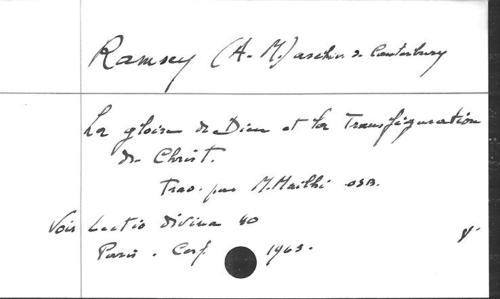 Ramsey (A. M.) archev. de Canterbury
La gloire de Dieu et la Transfiguration
du Christ.
Trad. par M. Mailhé OSB.
Voir Lectio divina 40
Paris. Cerf 1965.